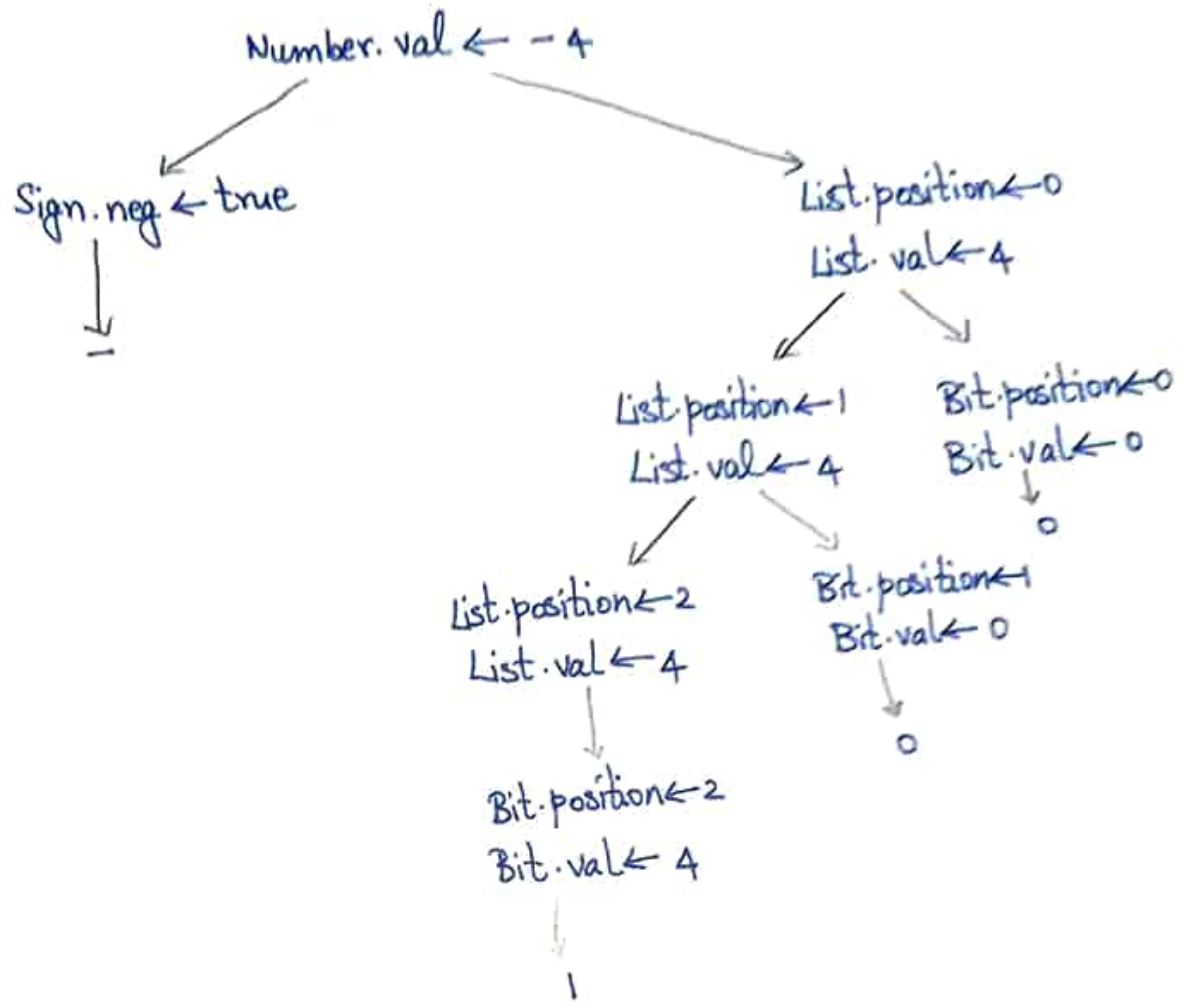 Number.val ← - 4
Sign.neg ← true
-
List.position ← 0
List.val ← 4
List.position ← 1
List.val ← 4
Bit.position ← 0
Bit.val ← 0
0
List.position ← 2
List.val ← 4
Bit.position ← 1
Bit.val ← 0
0
Bit.position ← 2
Bit.val ← 4
1